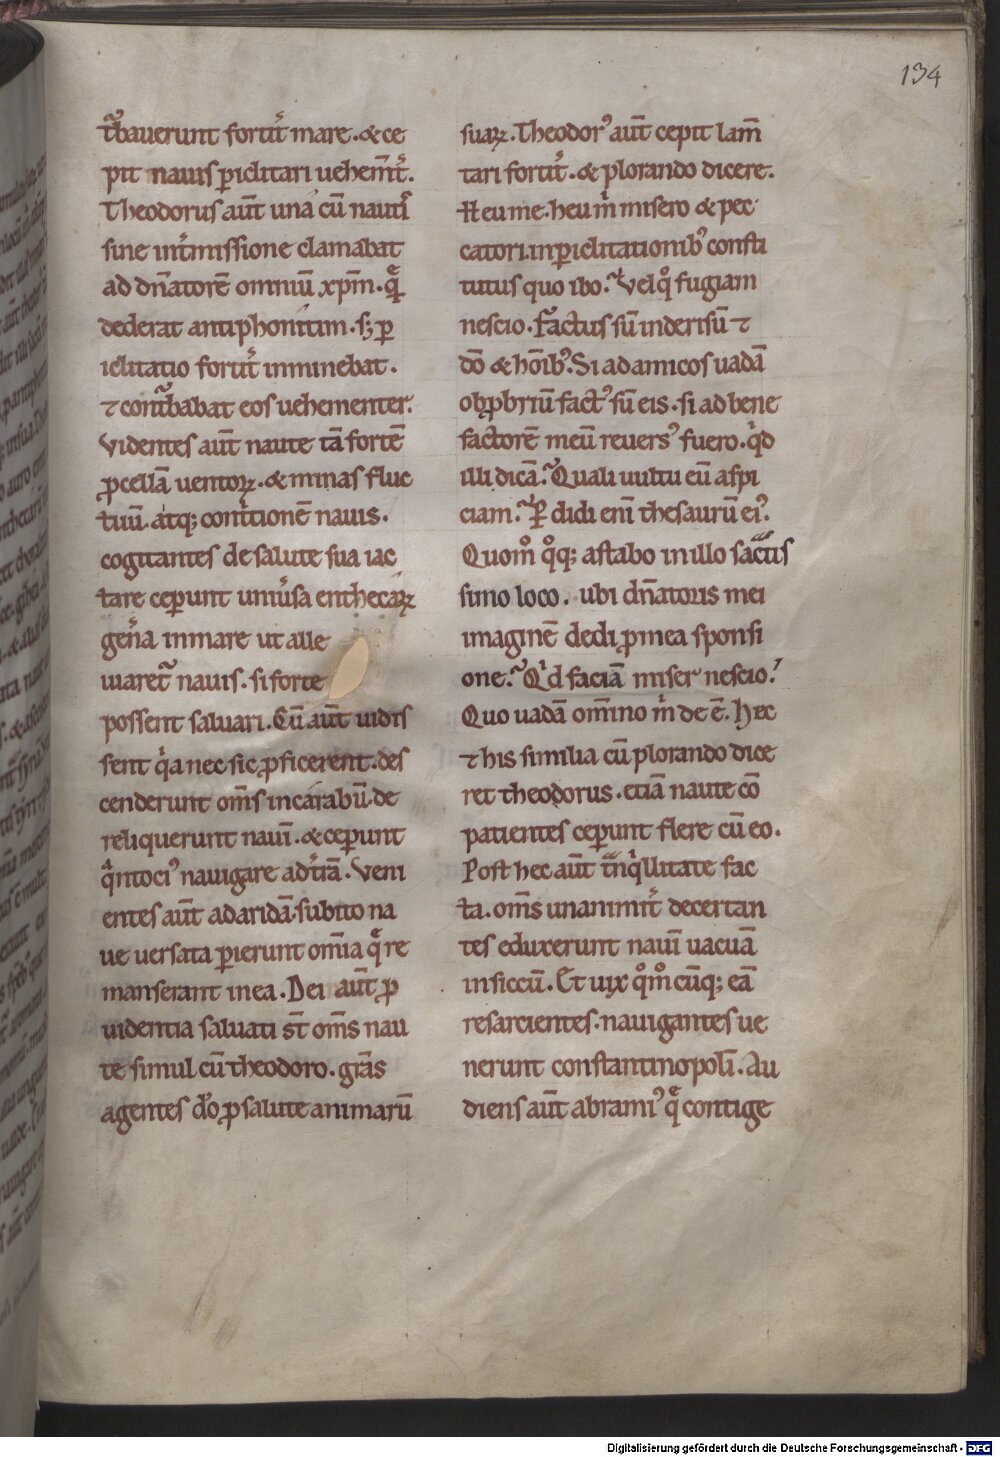 134
t̃bauerunt fortit̃ mare. & ce
pit nauis ꝑiclitari uehem̃t̃.
Theodorus aut̃ una cũ nautis
sine int̃missione clamabat
ad dñatorẽ omniũ xp̃m. quẽ
dederat antiphonitim. s; ꝑ
iclitatio fortit̃ inminebat.
⁊ conturbabat eos uehementer.
Videntes aut̃ naute tã fortẽ
ꝓcellã uentoꝝ. & minas fluc
tuũ. atq; contritionẽ nauis.
cogitantes de salute sua iac
tare ceperunt uniũsa enthecaꝝ
geña in mare ut alle
uiaret̃ nauis. si forte
possent saluari. Cũ aut̃ uidis
sent qͥa nec sic ꝓficerent. des
cenderunt om̃s in carabũ. de
reliquerunt nauĩ. & ceꝑunt
qͣntociꝰ nauigare ad t̃rã. Veni
entes aut̃ ad aridã. subito na
ue uersata ꝑierunt om̃ia q̃ re
manserant in ea. Dei aut̃ ꝓ
uidentia saluati st̃ om̃s nau
te simul cũ theodoro. gr̃as
agentes dõ ꝓ salute animarũ
suaꝝ. Theodorꝰ aut̃ cepit lam̃
tari fortit̃. & plorando dicere.
Heu me. heu mͥ misero & pec
catori. in ꝑiclitationibꝰ consti
tutus quo ibo? Vel qͦ fugiam
nescio. Factus sũ in derisũ ⁊
dõ & hõibꝰ. Si ad amicos uadã
obꝓbriũ factꝰ sũ eis. si ad bene
factorẽ meũ reuersꝰ fuero. qͥd
illi dicã? Quali uultu eũ aspi
ciam? Perdidi enĩ thesaurũ eiꝰ.
Quom̊ qͦq; astabo in illo sanctis
simo loco. ubi dñatoris mei
imaginẽ dedi ꝓ mea sponsi
one? Qͥd faciã miser nescio?
Quo uadã om̃ino mͥ deẽ. Hec
⁊ his similia cũ plorando dice
ret theodorus. etiã naute cõ
patientes ceꝑunt flere cũ eo.
Post hec aut̃ tñqͥllitate fac
ta. om̃s unanimit̃ decertan
tes eduxerunt nauĩ uacuã
in siccũ. Et uix qͦm̊ cũq; eã
resarcientes. nauigantes ue
nerunt constantinopolĩ. Au
diens aut̃ abramiꝰ q̃ contige
Digitalisierung gefördert durch die Deutsche Forschungsgemeinschaft - DFG